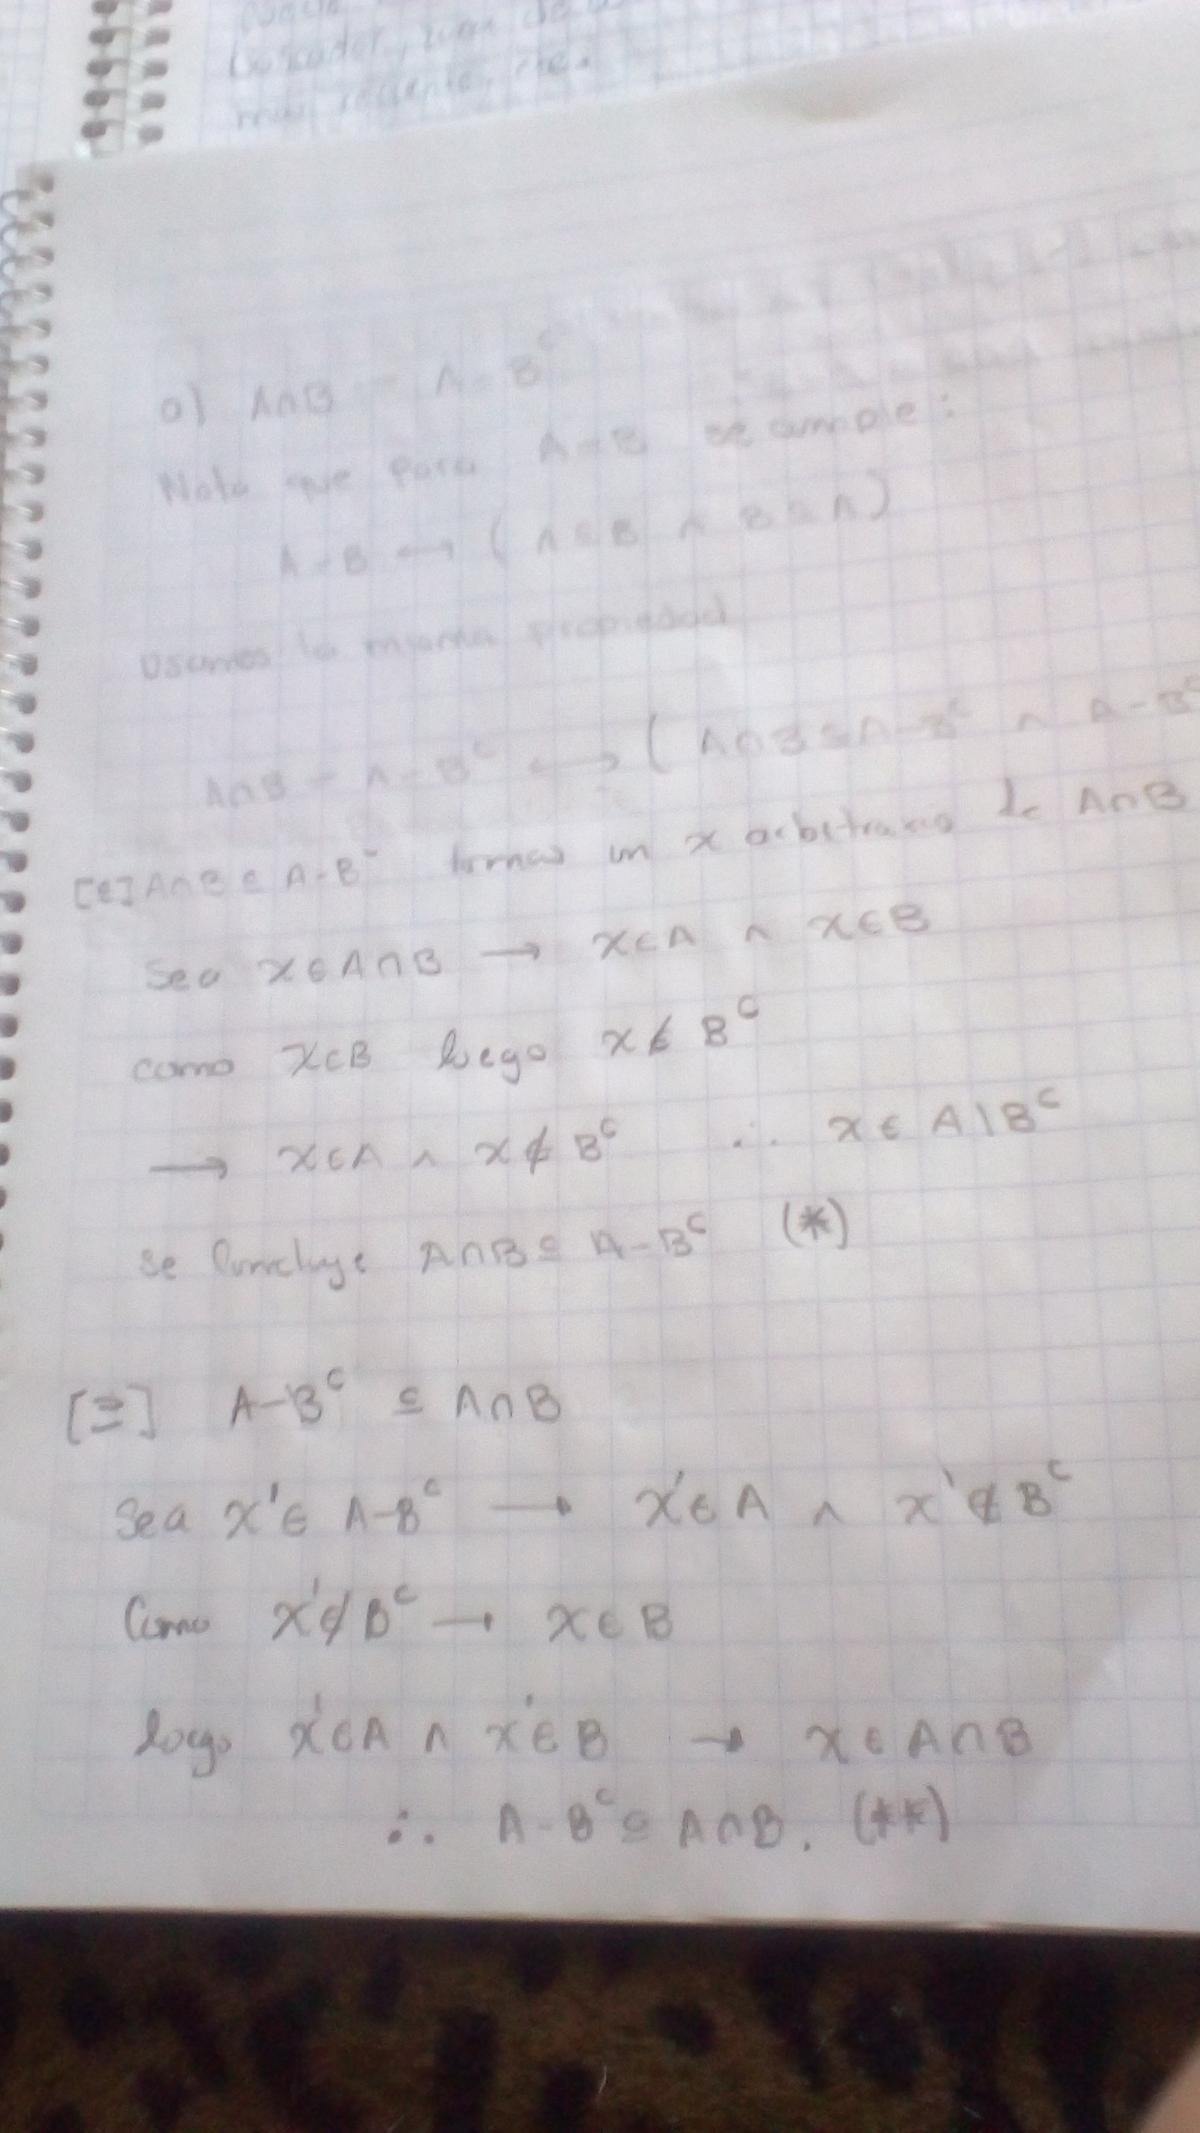 a) A∩B = A-Bᶜ
Nota que para A=B se cumple:
A=B ⟷ (A⊆B ∧ B⊆A)
Usamos la misma propiedad
A∩B = A-Bᶜ ⟷ (A∩B⊆A-Bᶜ ∧ A-Bᶜ
[⊆] A∩B⊆A-Bᶜ tomas un x arbitrario de A∩B
Sea x∈A∩B → x∈A ∧ x∈B
como x∈B luego x∉Bᶜ
→ x∈A ∧ x∉Bᶜ ∴ x∈A\Bᶜ
se concluye A∩B⊆A-Bᶜ (*)
[⊇] A-Bᶜ ⊆ A∩B
Sea x'∈A-Bᶜ → x'∈A ∧ x'∉Bᶜ
Como x'∉Bᶜ → x∈B
luego x'∈A ∧ x'∈B → x∈A∩B
∴ A-Bᶜ⊆A∩B. (**)